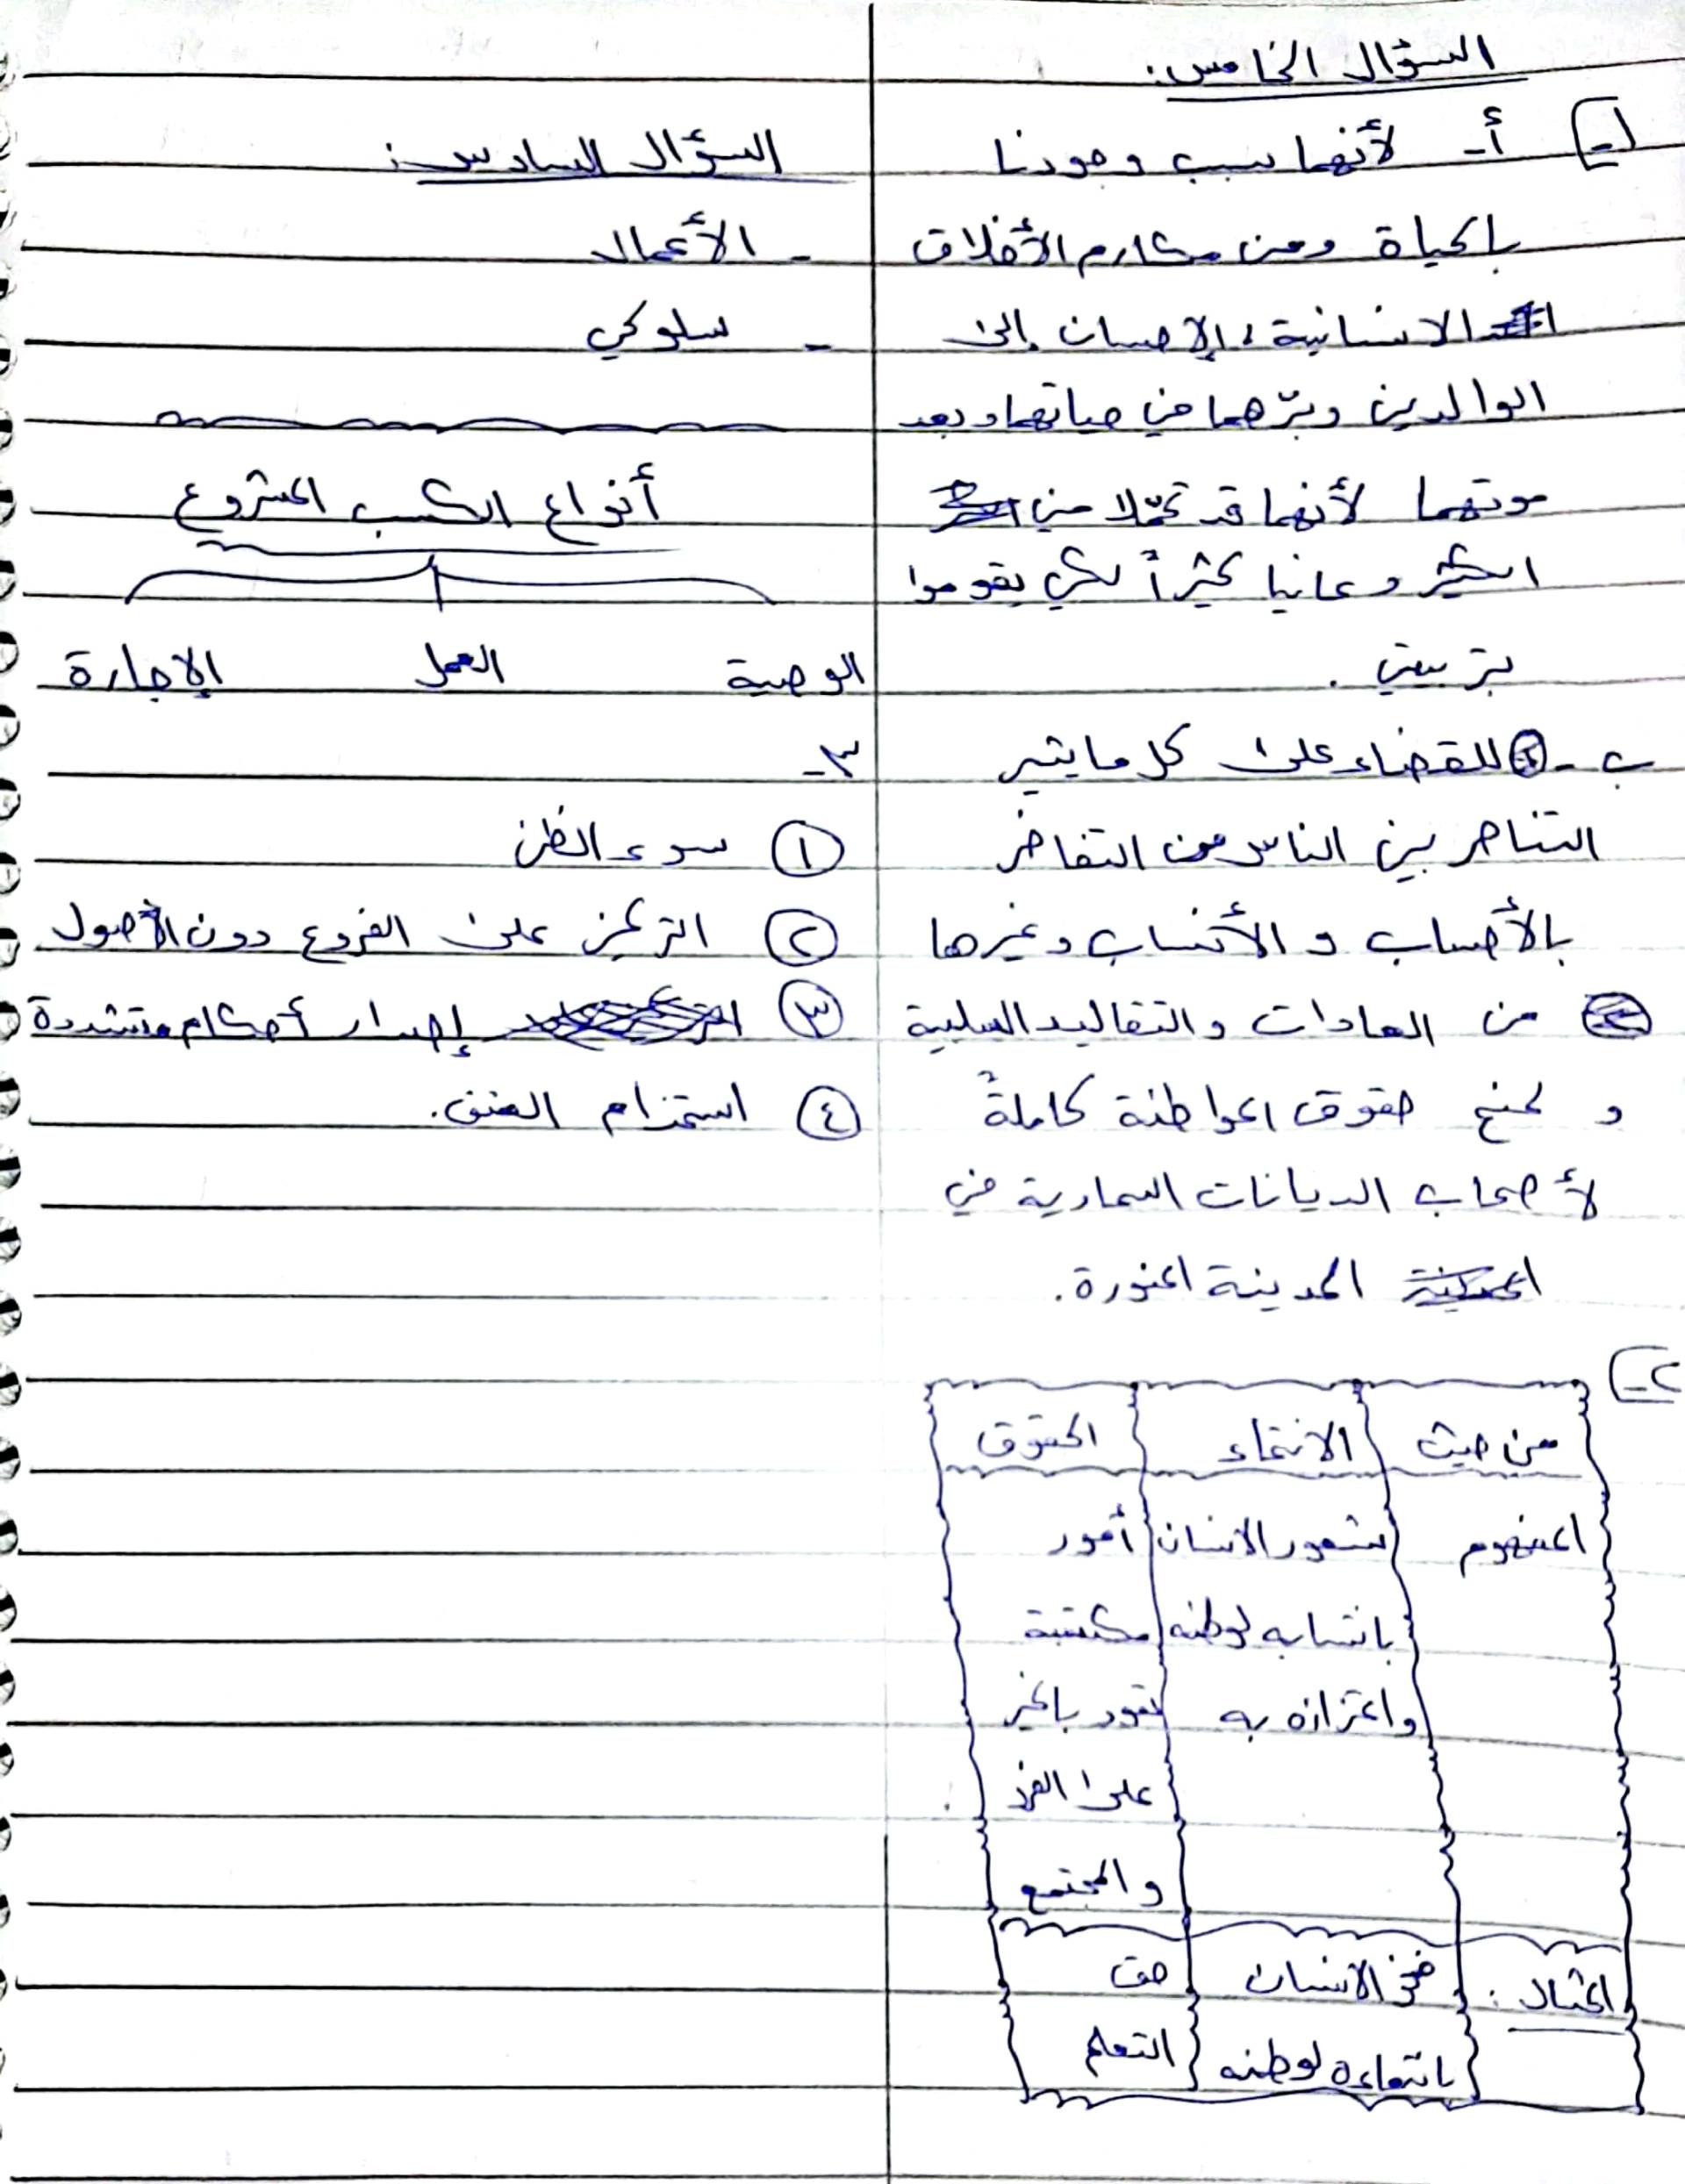 السؤال الخامس:
١- أ- لأنهما سبب وجودنا
بالحياة ومن مكارم الأخلاق
الانسانية، الإحسان إلى
الوالدين وبرّهما في حياتهما وبعد
موتهما لأنهما قد تحمّلا مني
الكثير وعانيا كثيراً لكي يقوموا
بتربيتي.
ب- للقضاء على كل ما يثير
التناحر بين الناس من التفاخر
بالأحساب و الأنساب وغيرها
من العادات والتقاليد السلبية
و لمنح حقوق المواطنة كاملةً
لأصحاب الديانات السماوية في
المدينة المنورة.
٢-
من حيث | الانتماء | الحقوق
المفهوم | شعور الانسان | أمور
بانتسابه لوطنه | مكتسبة
واعتزازه به | تعود بالخير
على الفرد
والمجتمع
المثال: | فخر الانسان | حق
بانتماءه لوطنه | التعلم
السؤال السادس:
- الأعمال
- سلوكي
أنواع الكسب المشروع
الوصية العمل الإجارة
٣-
١ سوء الظن
٢ التركيز على الفروع دون الأصول
٣ إصدار أحكام متشددة
٤ استخدام العنف.